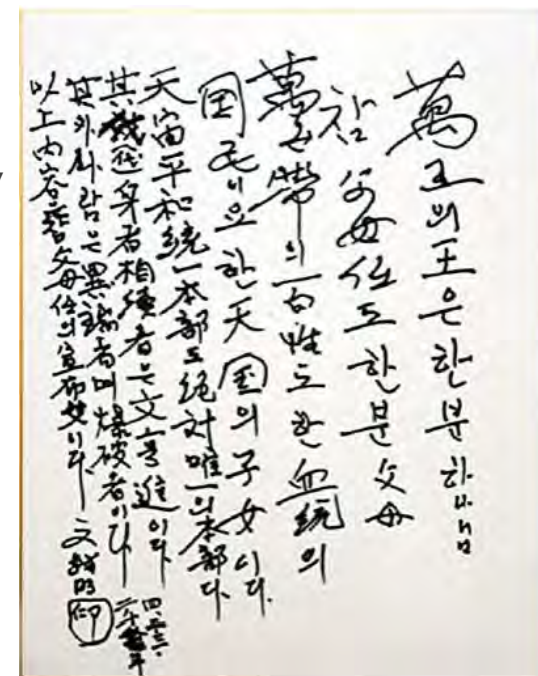 萬王의 王은 한분 하나님
참父母任도 한분 父母
萬世帶의 百性도 한 血統의
国民이요 한 天国의 子女이다.
天宙平和統一本部도 絶対唯一의 本部다.
其代身者相続者는 文亨進이다.
其外사람은 異端者며 爆破者이다.
以上内容은 父母任의 宣布文이다. 文鮮明